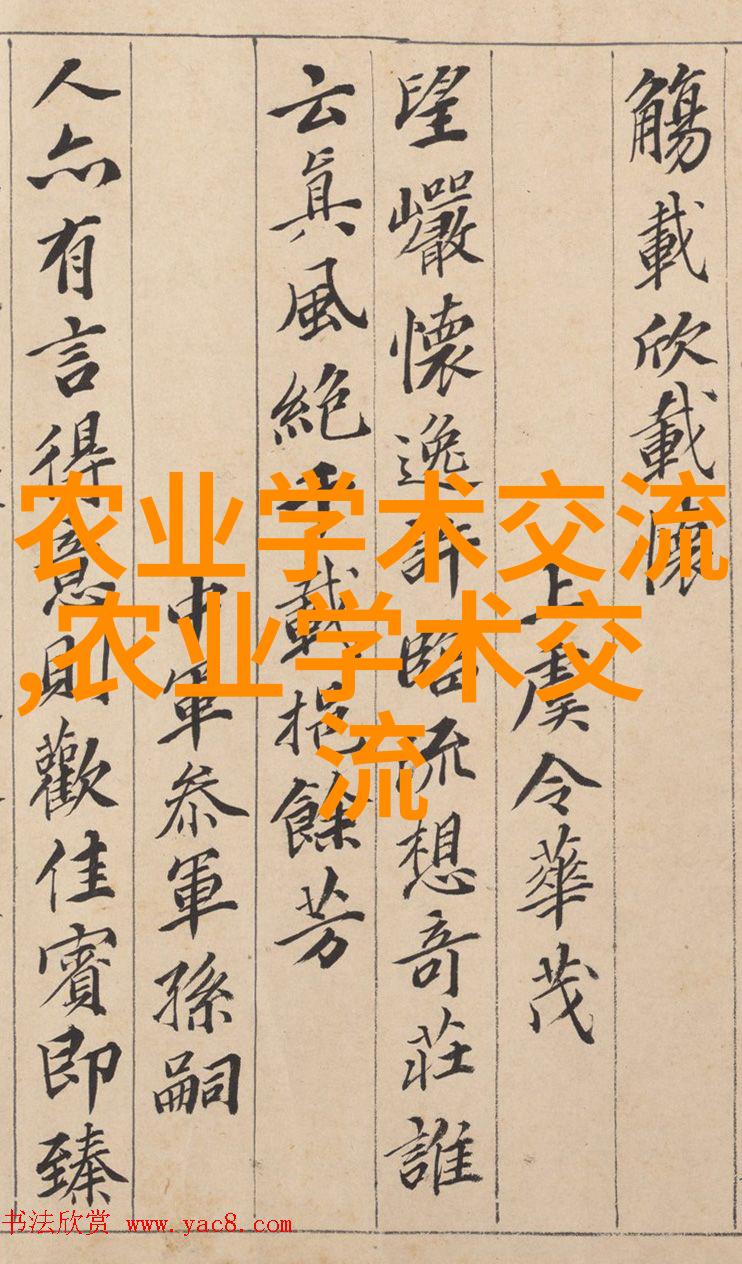 觴載欣載懷
上虞令華茂
望巖懷逸許臨流想奇莊誰
云真風絕千載挹餘芳
中軍參軍孫嗣
人亦有言得意則歡佳賓即臻
农业学术交流
,农业学术交
流
书法欣赏 www.yac8.com